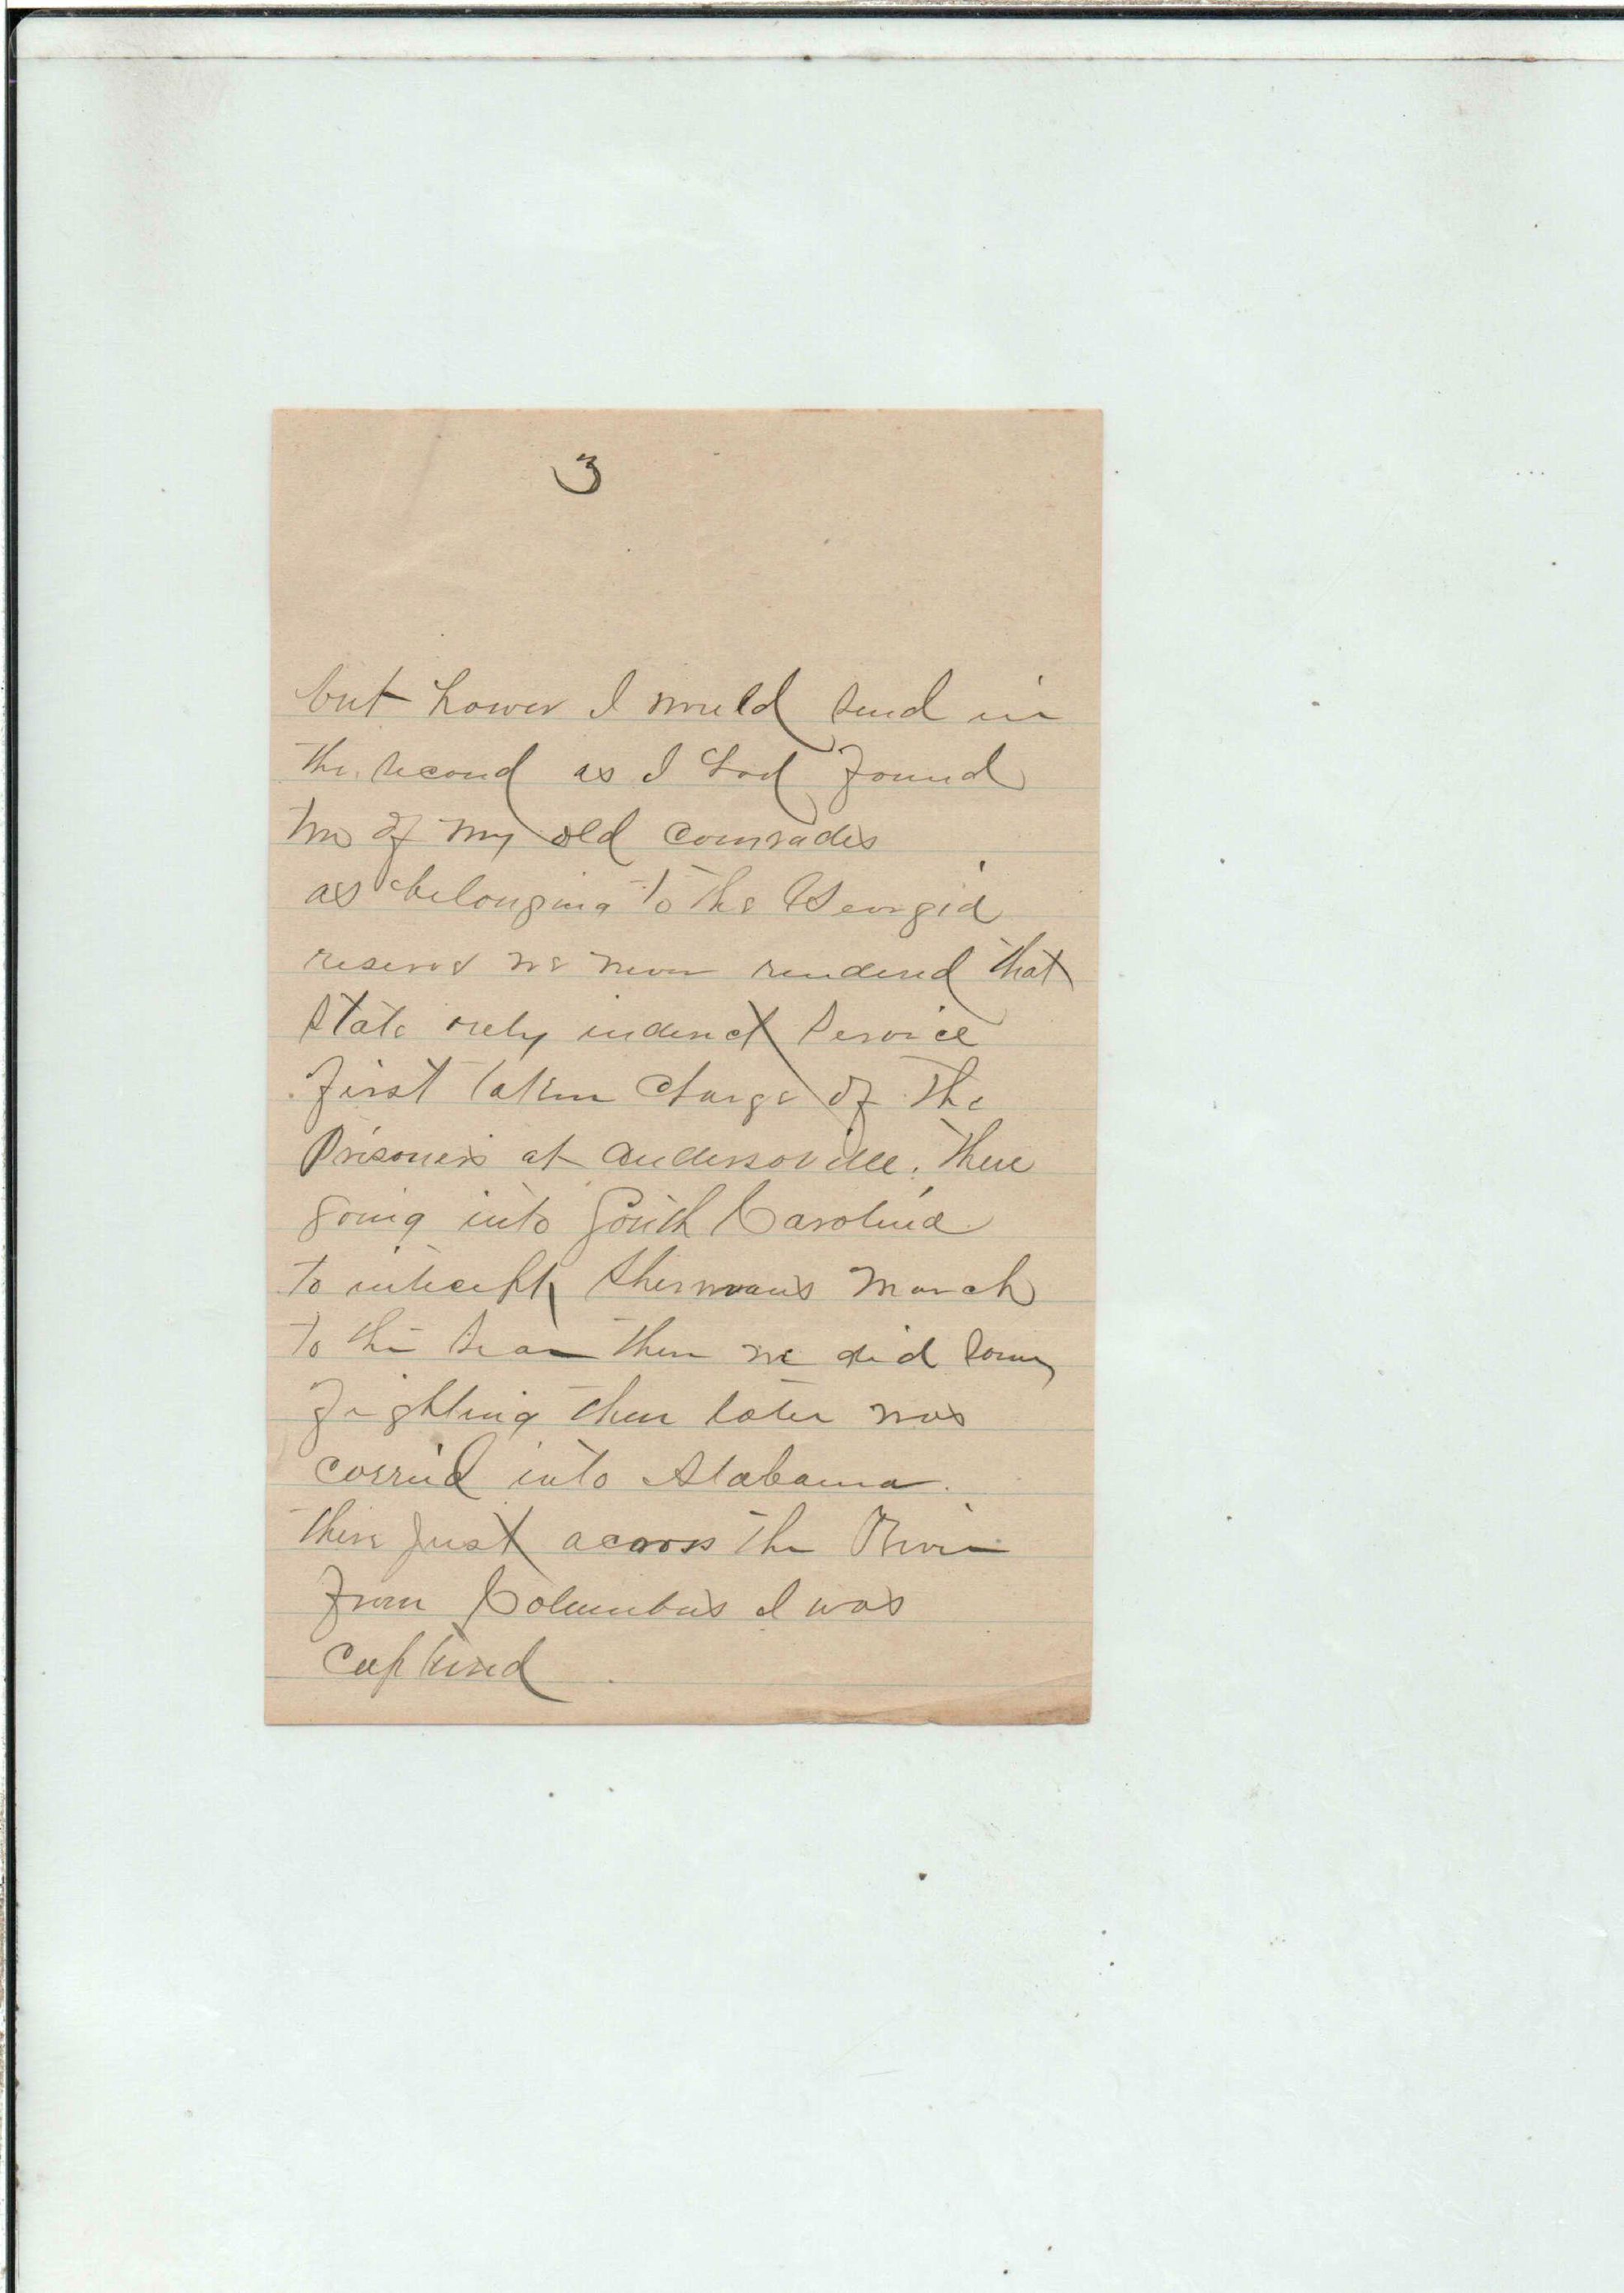 3
but hower I would send in
the second as I had found
two of my old comrades
as belonging to the Georgia
reserve we never rendered that
State only indirect Service
first taken charge of the
Prisoners at Andersoville. then
going into South Carolina
to intecept Shermans March
to the Sea then we did some
fighting then later was
carried into Alabama.
there just across the River
from Columbus I was
captured